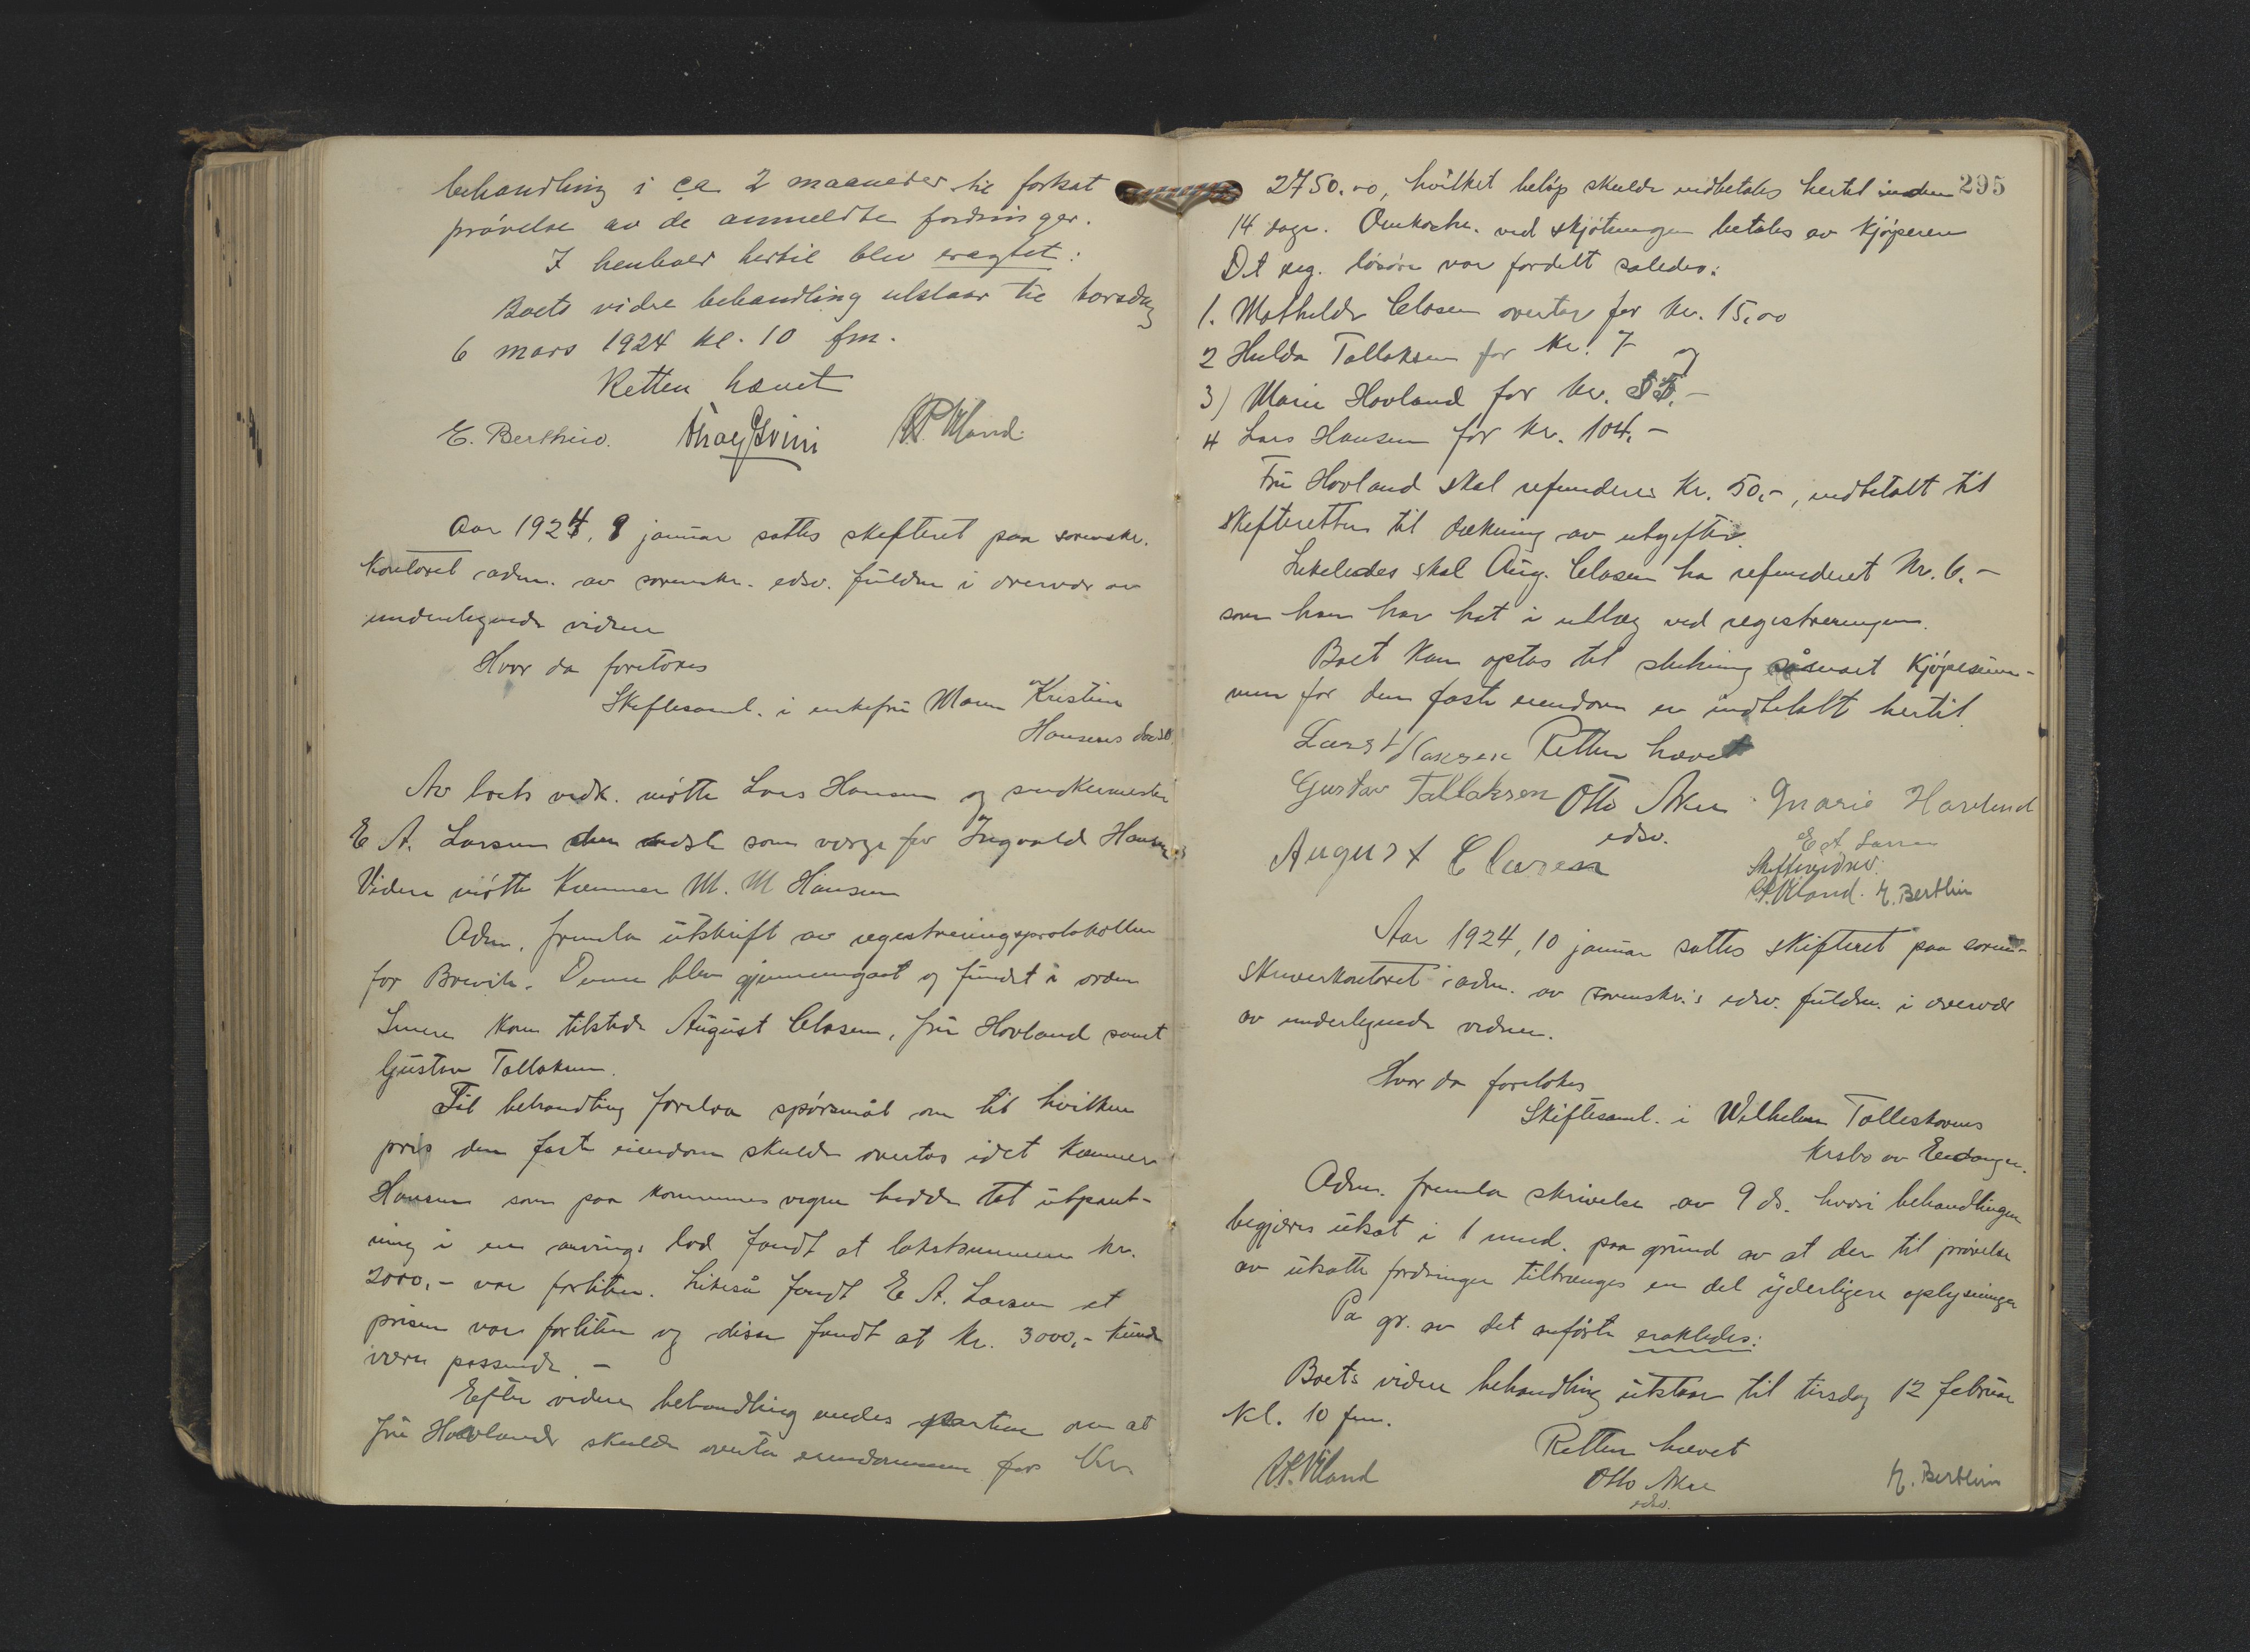 behandling i ca 2 maaneder til forsat
prøvelse av de anmeldte fordringer.
I henhold hertil blev eragtet:
Boets vidre behandling utstaar til torsdag
6 mars 1924 kl. 10 fm.
Retten hævet
E. Berthin.
Aar 1924, 9 januar sattes skifteret paa sorenskr.
kontoret adm. av sorenskr. edsv. fuldm i overvær av
undertegnede vidner
Hvor da foretokes
Skiftesaml. i enkefru Maren Kristine
Hansens dødsbo
Av boets vedk. møtte Lars Hansen og snekkermester
E A. Larsen den sidste som verge for Ingvald Hansen
Videre møtte Kæmner M. M Hansen
Adm. fremla utskrift av registreringsprotokollen
for Brevik. Denne blev gjennemgaat og fundet i orden
Senere kom tilstede August Clasen, fru Hovland samt
Gustav Tallaksen.
Til behandling forelaa spørsmål om til hvilken
pris den faste eiendom skulde overtas idet Kæmner
Hansen som paa kommunes vegne hadde tat utpant-
ning i en arvings lod fandt at takstsummen kr.
2000,- var forliten. Likeså fandt E A. Larsen at
prisen var forliten og disse fandt at kr. 3000,- kunde
være passende. -
Efter videre behandling enedes partene om at
fru Hovland skulde overta eiendommen for kr.
295
2750.00, hvilket beløp skulde indbetales hertil inden
14 dage. Omkostn. ved skjøtningen betales av kjøperen
Det reg. løsøre var fordelt saledes:
1. Mathilde Clasen overtar for kr. 15,00
2 Hulda Tallaksen for kr. 7 og
3) Marie Hovland for kr.
4 Lars Hansen for kr. 104,-
Fru Hovland skal refunderes kr. 50,-, indbetalt til
skifteretten til dækning av utgifter.
Likeledes skal Aug. Clasen ha refunderet kr. 6.-
som han har hat i utlæg ved registreringen.
Boet kan optas til slutning såsnart kjøpesum-
men for den faste eiendom er indbetalt hertil.
Lars Hansen Retten hævet
Gustav Tallaksen Otto Aker Marie Havlund
edsv.
August Clasen
E A Larsen
Skiftevidner:
E. Berthin
Aar 1924, 10 januar sattes skifteret paa soren-
skriverkontoret adm. av sorenskr.'s edsv. fuldm. i overvær
av undertegnede vidner.
Hvor da foretokes
Skiftesaml. i Wilhelm Tolleskovens
krsbo av Eidanger.
Adm. fremla skrivelse av 9 ds. hvori behandlingen
begjæres utsat i 1 mnd. paa grund av at der til prøvelse
av utsatte fordringer tiltrænges en del yderligere oplysninger
På gr. av det anførte eraktedes:
Boets videre behandling utstaar til tirsdag 12 februar
kl. 10 fm.
Retten hævet
Otto Aker
edsv.
E. Berthin